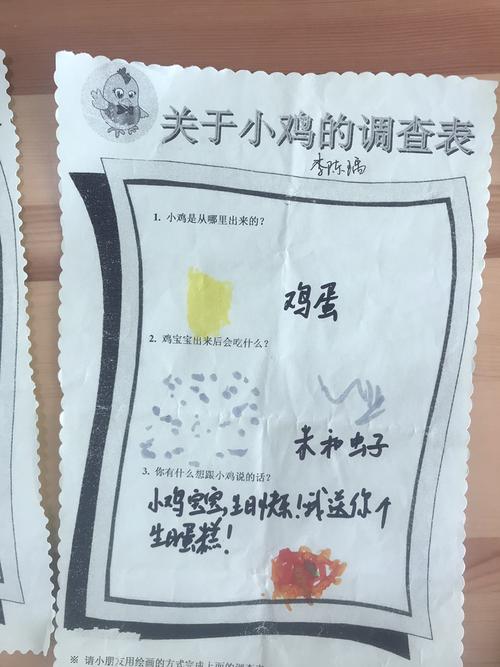 关于小鸡的调查表
李陈瑀
1. 小鸡是从哪里出来的?
鸡蛋
2. 鸡宝宝出来后会吃什么?
米和虫子
3. 你有什么想跟小鸡说的话?
小鸡宝宝,生日快乐!我送你个
生日蛋糕!
※ 请小朋友用绘画的方式完成上面的调查表